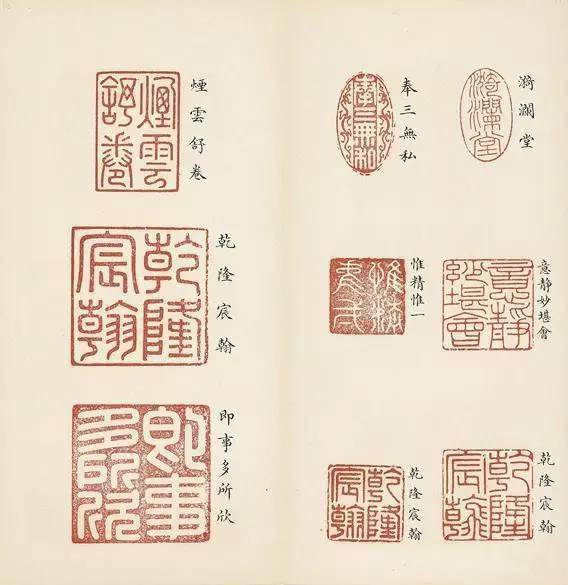 漪瀾堂
漪瀾堂
奉三無私
奉三無私
意靜妙堪會
意靜妙堪會
惟精惟一
乾隆宸翰
乾隆宸翰
乾隆宸翰
乾隆宸翰
煙雲舒卷
煙雲舒卷
乾隆宸翰
乾隆宸翰
即事多所欣
即事多所欣